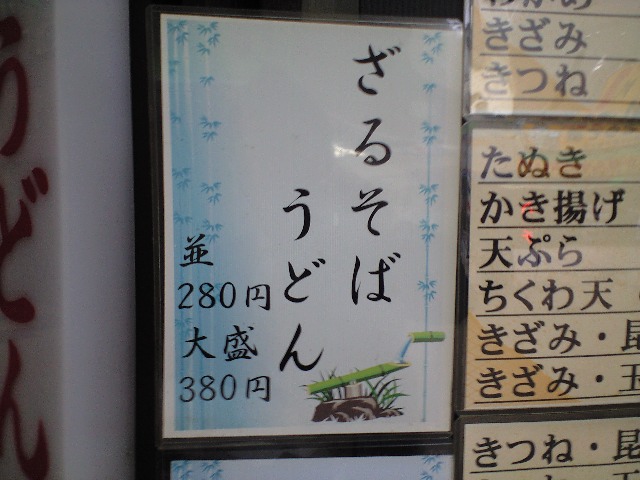 うどん
ざるそば
うどん
並
280円
大盛
380円
きざみ
きつね
たぬき
かき揚げ
天ぷら
ちくわ天
きざみ・昆
きざみ・玉
きつね・昆